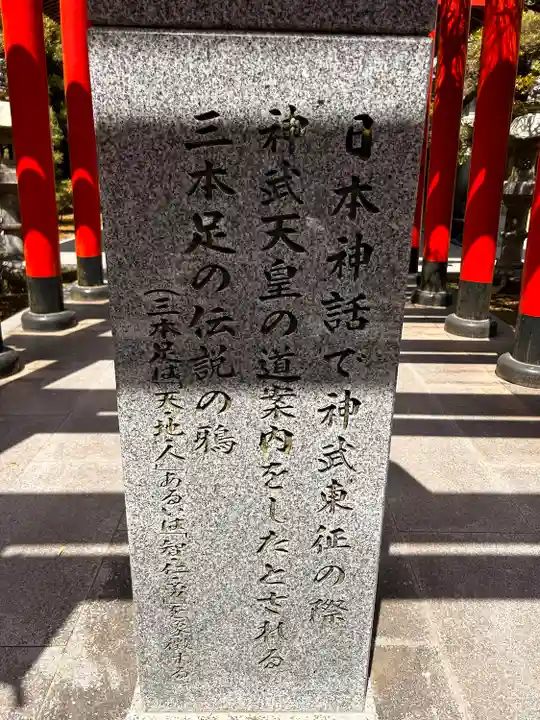 日本神話で神武東征の際
神武天皇の道案内をしたとされる
三本足の伝説の鴉
(三本足は「天・地・人」あるいは「智・仁・勇」を象徴する